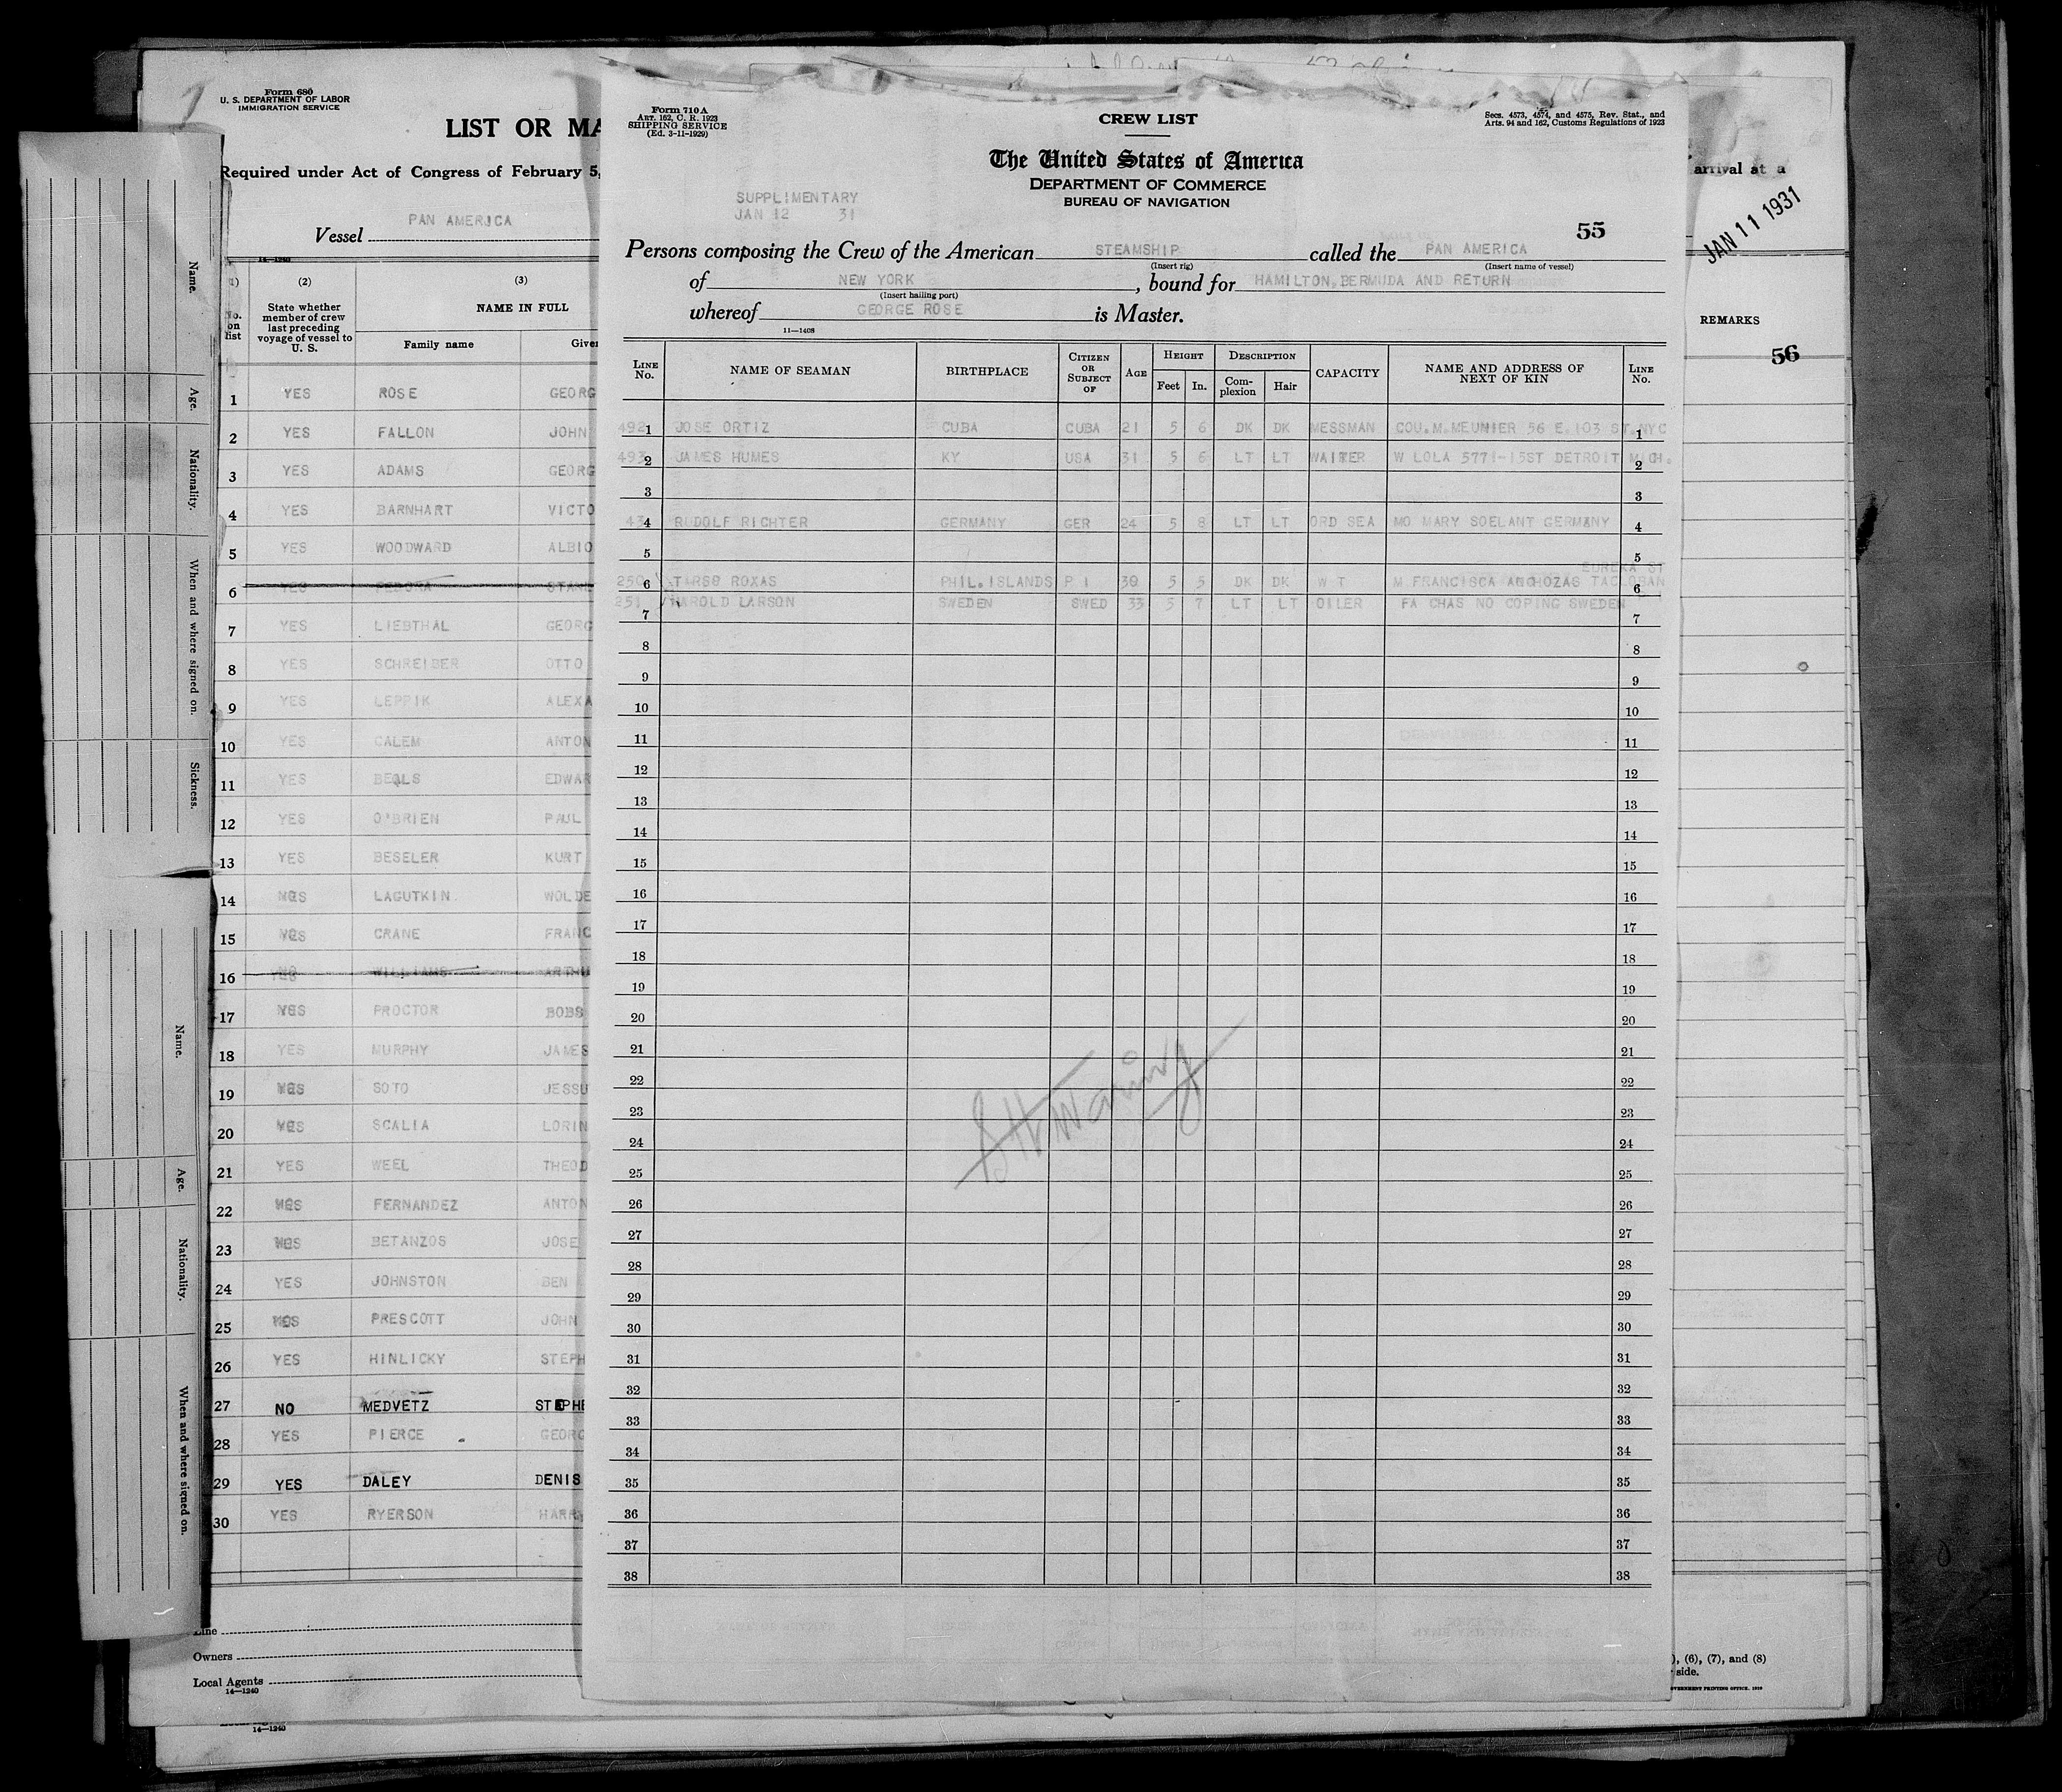 Form 680
U. S. DEPARTMENT OF LABOR
IMMIGRATION SERVICE
LIST OR MA
Required under Act of Congress of February 5,
Vessel PAN AMERICA
14—1240
(1) (2) (3)
No. on list
State whether member of crew last preceding voyage of vessel to U. S.
NAME IN FULL
Family name Given
1 YES ROSE GEORG
2 YES FALLON JOHN
3 YES ADAMS GEORG
4 YES BARNHART VICTO
5 YES WOODWARD ALBIO
6 YES
7 YES LIEBTHAL GEORG
8 YES SCHREIBER OTTO
9 YES LEPPIK ALEXA
10 YES CALEM ANTON
11 YES BEALS EDWAR
12 YES O'BRIEN PAUL
13 YES BESELER KURT
14 LAGUTKIN WOLDE
15 CRANE FRANC
16 WILLIAMS ARTHU
17 PROCTOR BOBS
18 YES MURPHY JAMES
19 SOTO JESSU
20 SCALIA LORIN
21 YES WEEL THEOD
22 FERNANDEZ ANTON
23 BETANZOS JOSE
24 YES JOHNSTON BEN
25 PRESCOTT JOHN
26 YES HINLICKY STEPH
27 NO MEDVETZ STEPHE
28 YES PIERCE GEORG
29 YES DALEY DENIS
30 YES RYERSON HARRY
Line
Owners
Local Agents
14—1240
14—1240
Name.
Age.
Nationality.
When and where signed on.
Sickness.
Name.
Age.
Nationality.
When and where signed on.
Form 710 A
ART. 162, C. R. 1923
SHIPPING SERVICE
(Ed. 3-11-1929)
CREW LIST
Secs. 4573, 4574, and 4575, Rev. Stat., and
Arts. 94 and 162, Customs Regulations of 1923
The United States of America
DEPARTMENT OF COMMERCE
BUREAU OF NAVIGATION
SUPPLIMENTARY
JAN 12 31
55
Persons composing the Crew of the American STEAMSHIP called the PAN AMERICA
(Insert rig) (Insert name of vessel)
of NEW YORK, bound for HAMILTON, BERMUDA AND RETURN
(Insert hailing port)
whereof GEORGE ROSE is Master.
11—1408
LINE No. NAME OF SEAMAN BIRTHPLACE CITIZEN OR SUBJECT OF AGE HEIGHT Feet In. DESCRIPTION Complexion Hair CAPACITY NAME AND ADDRESS OF NEXT OF KIN LINE No.
492 1 JOSE ORTIZ CUBA CUBA 21 5 6 DK DK MESSMAN COU.M.MEUNIER 56 E.103 ST.NYC 1
493 2 JAMES HUMES KY USA 31 5 6 LT LT WAITER W LOLA 5771-15ST DETROIT MICH. 2
3 3
43 4 RUDOLF RICHTER GERMANY GER 24 5 8 LT LT ORD SEA MO MARY SOELANT GERMANY 4
5 5
EUREKA ST
250 6 TIRSO ROXAS PHIL.ISLANDS P I 30 5 5 DK DK W T M FRANCISCA TACLOBAN 6
251 7 HAROLD LARSON SWEDEN SWED 33 5 7 LT LT OILER FA CHAS NO COPING SWEDEN 7
8 8
9 9
10 10
11 11
12 12
13 13
14 14
15 15
16 16
17 17
18 18
19 19
20 20
21 21
22 22
23 23
24 24
25 25
26 26
27 27
28 28
29 29
30 30
31 31
32 32
33 33
34 34
35 35
36 36
37 37
38 38
arrival at a
JAN 11 1931
REMARKS
56
), (6), (7), and (8)
side.
GOVERNMENT PRINTING OFFICE. 1930